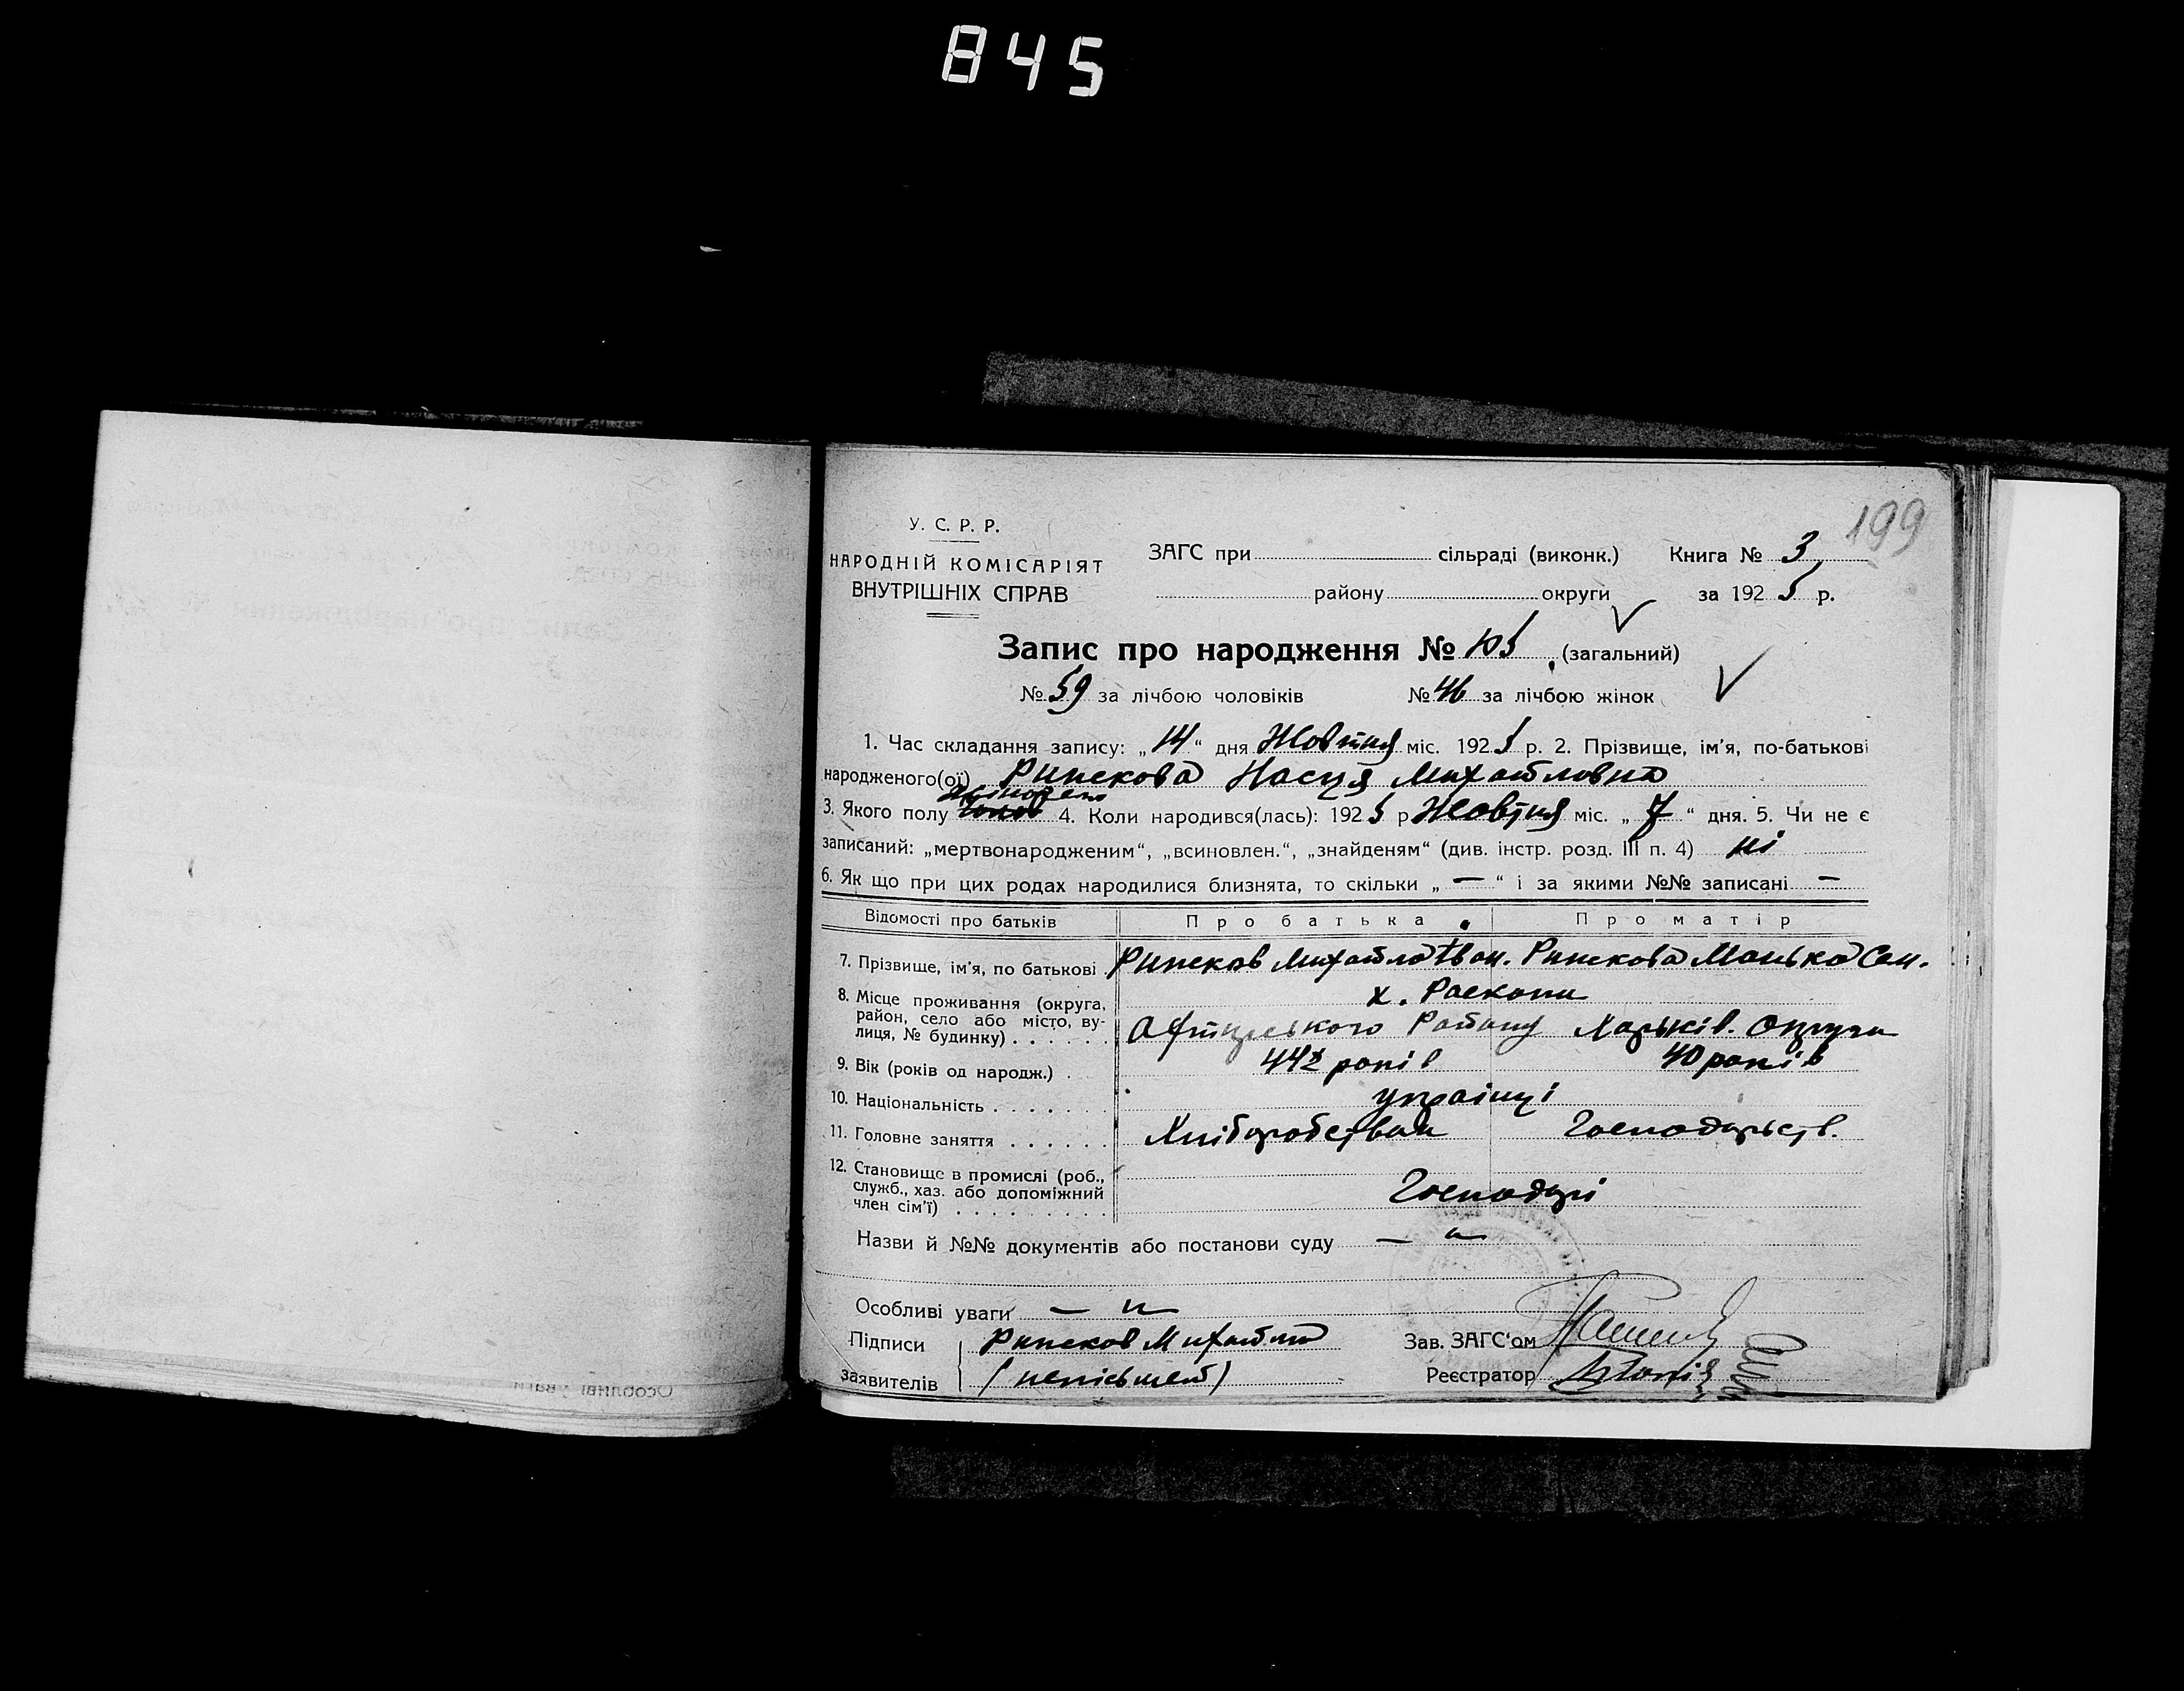 845
199
У. С. Р. Р.
НАРОДНІЙ КОМІСАРІЯТ
ВНУТРІШНІХ СПРАВ
ЗАГС при сільраді (виконк.) Книга № 3
району округи за 1925 р.
Запис про народження № 105 (загальний)
№ 59 за лічбою чоловіків № 46 за лічбою жінок
1. Час складання запису: „14“ дня Жовтня міс. 1925 р. 2. Прізвище, ім'я, по-батькові
народженого(ої) Насця Михайловна
3. Якого полу 4. Коли народився(лась): 1925 р Жовтня міс. „7“ дня. 5. Чи не є
записаний: „мертвонародженим“, „всиновлен.“, „знайденям“ (див. інстр. розд. III п. 4) ні
6. Як що при цих родах народилися близнята, то скільки „—“ і за якими №№ записані —
Відомості про батьків Про батька Про матір
7. Прізвище, ім'я, по батькові Михайло Іван. Манька Сем.
8. Місце проживання (округа, район, село або місто, вулиця, № будинку) х. Раскопи
Району Харьків. Округи
9. Вік (років од народж.) років 40 років
10. Національність українці
11. Головне заняття Господарств.
12. Становище в промислі (роб., служб., хаз. або допоміжний член сім'ї) Господарі
Назви й №№ документів або постанови суду — „ —
Особливі уваги — „ —
Підписи Михайло Зав. ЗАГС'ом
заявителів (неписьмен) Реєстратор
Особливі уваги